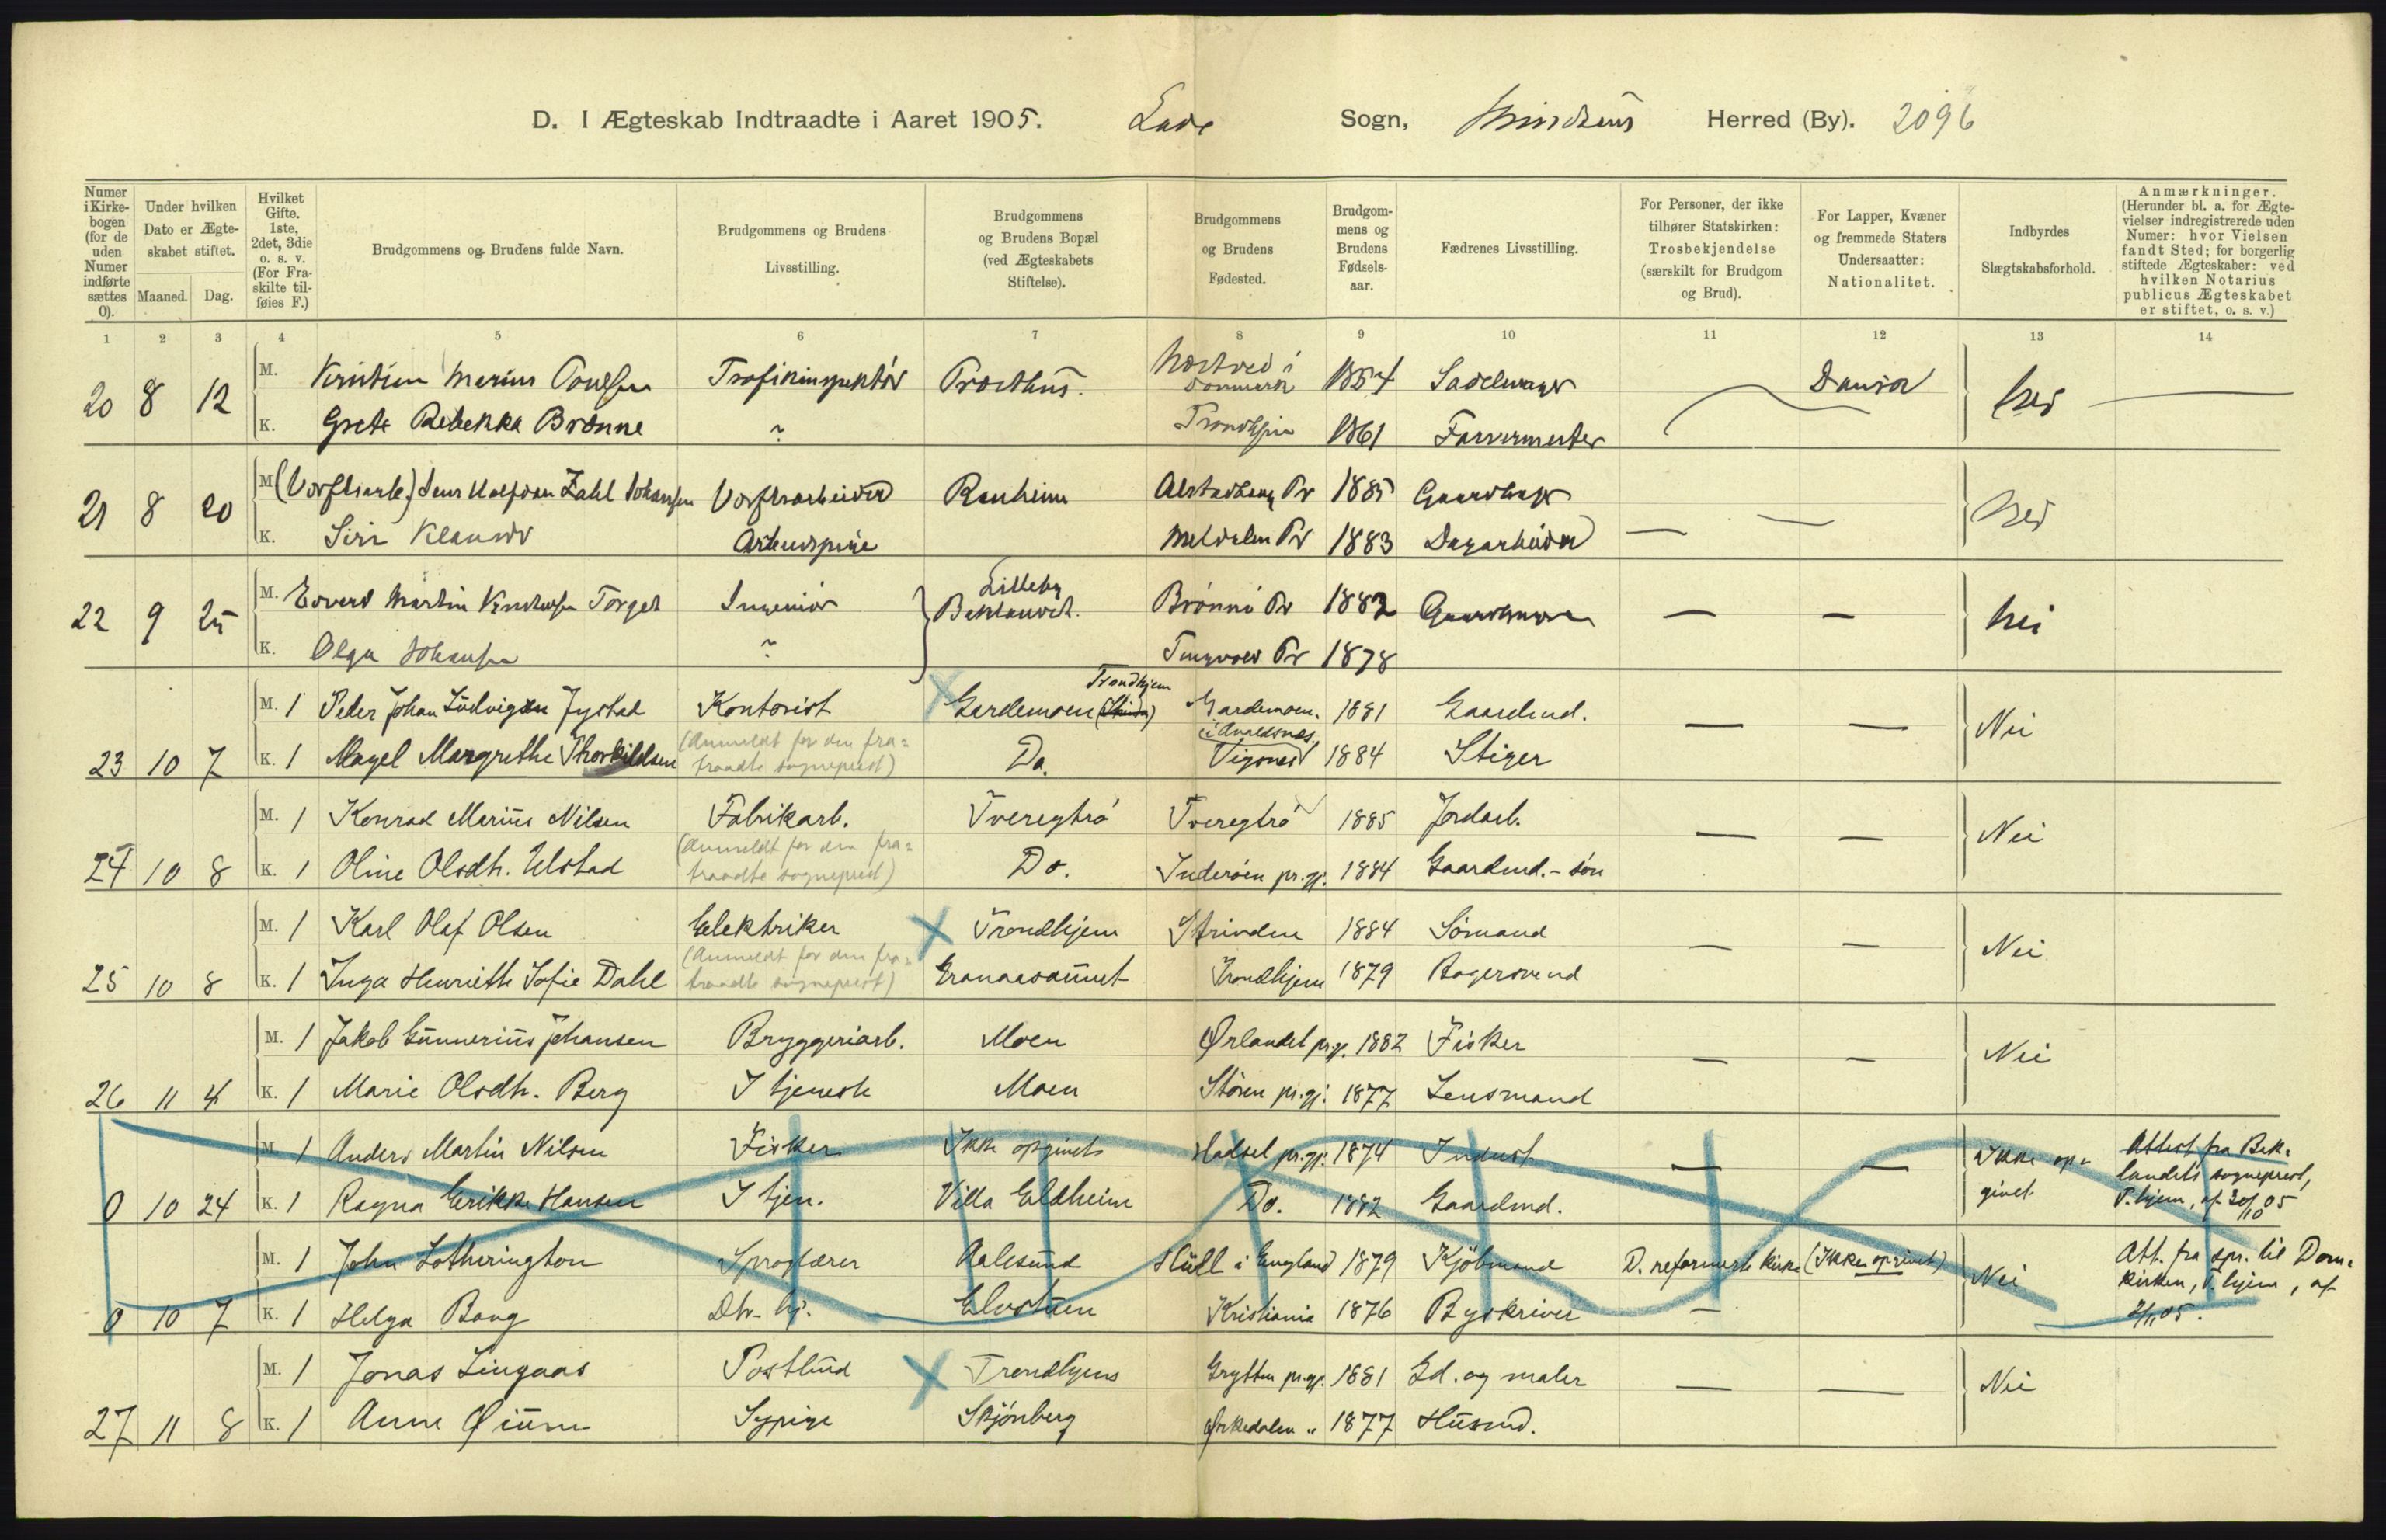 D. I Ægteskab Indtraadte i Aaret 1905. Lade Sogn, Herred (By). 2096
Numer i Kirkebogen (for de uden Numer indførte sættes 0).
Under hvilken Dato er Ægteskabet stiftet.
Maaned. Dag.
Hvilket Gifte. 1ste, 2det, 3die o. s. v. (For Fraskilte tilføies F.)
Brudgommens og Brudens fulde Navn.
Brudgommens og Brudens Livsstilling.
Brudgommens og Brudens Bopæl (ved Ægteskabets Stiftelse).
Brudgommens og Brudens Fødested.
Brudgommens og Brudens Fødselsaar.
Fædrenes Livsstilling.
For Personer, der ikke tilhører Statskirken: Trosbekjendelse (særskilt for Brudgom og Brud).
For Lapper, Kvæner og fremmede Staters Undersaatter: Nationalitet.
Indbyrdes Slægtskabsforhold.
Anmærkninger. (Herunder bl. a. for Ægtevielser indregistrerede uden Numer: hvor Vielsen fandt Sted; for borgerlig stiftede Ægteskaber: ved hvilken Notarius publicus Ægteskabet er stiftet, o. s. v.)
1 2 3 4 5 6 7 8 9 10 11 12 13 14
M. Kristian Marius Trafikinspektør 1854 Sadelmager Dansk
20 8 12 Nei
K. Grete Rebekka Brænne Trondhjem 1861 Farvermester
M. Jens Zahl Johansen Ranheim 1885
21 8 20 Nei
K. Siri Meldalen Pr 1883 Dagarbeider
M. Edvard Martin Torget Ingeniør Lilleby Brønnø Pr 1882
22 9 25 Nei
K. Olga Johansen Tingvold Pr 1878
M. 1 Peder Johan Ludvigsen Jystad Kontorist Gardemoen (Strinda) Trondhjem Gardemoen. 1881 Gaardmd. — — Nei
23 10 7 K. 1 Magel Margrethe Thorkildsen (Anmeldt for den fratraadte sogneprest) Do. Vigsnes i Avaldsnes. 1884 Stiger
M. 1 Konrad Marius Nilsen Fabrikarb. Tveregtrø Tveregtrø 1885 Jordarb. — — Nei
24 10 8 K. 1 Oline Olsdtr. Ulstad (Anmeldt for den fratraadte sogneprest) Do. Inderøen pr.gj. 1884 Gaardmd.-søn
M. 1 Karl Olaf Olsen Elektriker Trondhjem Strinden 1884 Sømand — — Nei
25 10 8 K. 1 Inga Henriette Sofie Dahl (Anmeldt for den fratraadte sogneprest) Trondhjem 1879 Bagersvend
M. 1 Jakob Gunnerius Johansen Bryggeriarb. Moen Ørlandet pr.gj. 1882 Fisker — — Nei
26 11 4 K. 1 Marie Olsdtr. Berg I tjeneste Moen Støren pr.gj. 1877 Lensmand
M. 1 Anders Martin Nilsen Fisker Ikke opgivet Hadsel pr.gj. 1874 Inderst — — Ikke opgivet Attest fra Baklandets sogneprest, T.hjem, af 30/10 05
0 10 24 K. 1 Ragna Erikke Hansen I tjen. Villa Eldheim Do. 1882 Gaardmd.
M. 1 John Lotherington Sproglærer Aalesund Hull i England 1879 Kjøbmand D. reformerte kirke (Ikke opgivet) Nei Att. fra spr. til Domkirken, T.hjem, af 2/11 05.
0 10 7 K. 1 Helga Bang Dtr. hj. Elvstuen Kristiania 1876 Byskriver —
M. 1 Jonas Lingaas Postbud Trondhjem Grytten pr.gj. 1881 Gd. og maler — — Nei
27 11 8 K. 1 Anne Øium Sypige Skjønberg Orkedalen „ 1877 Husmd.